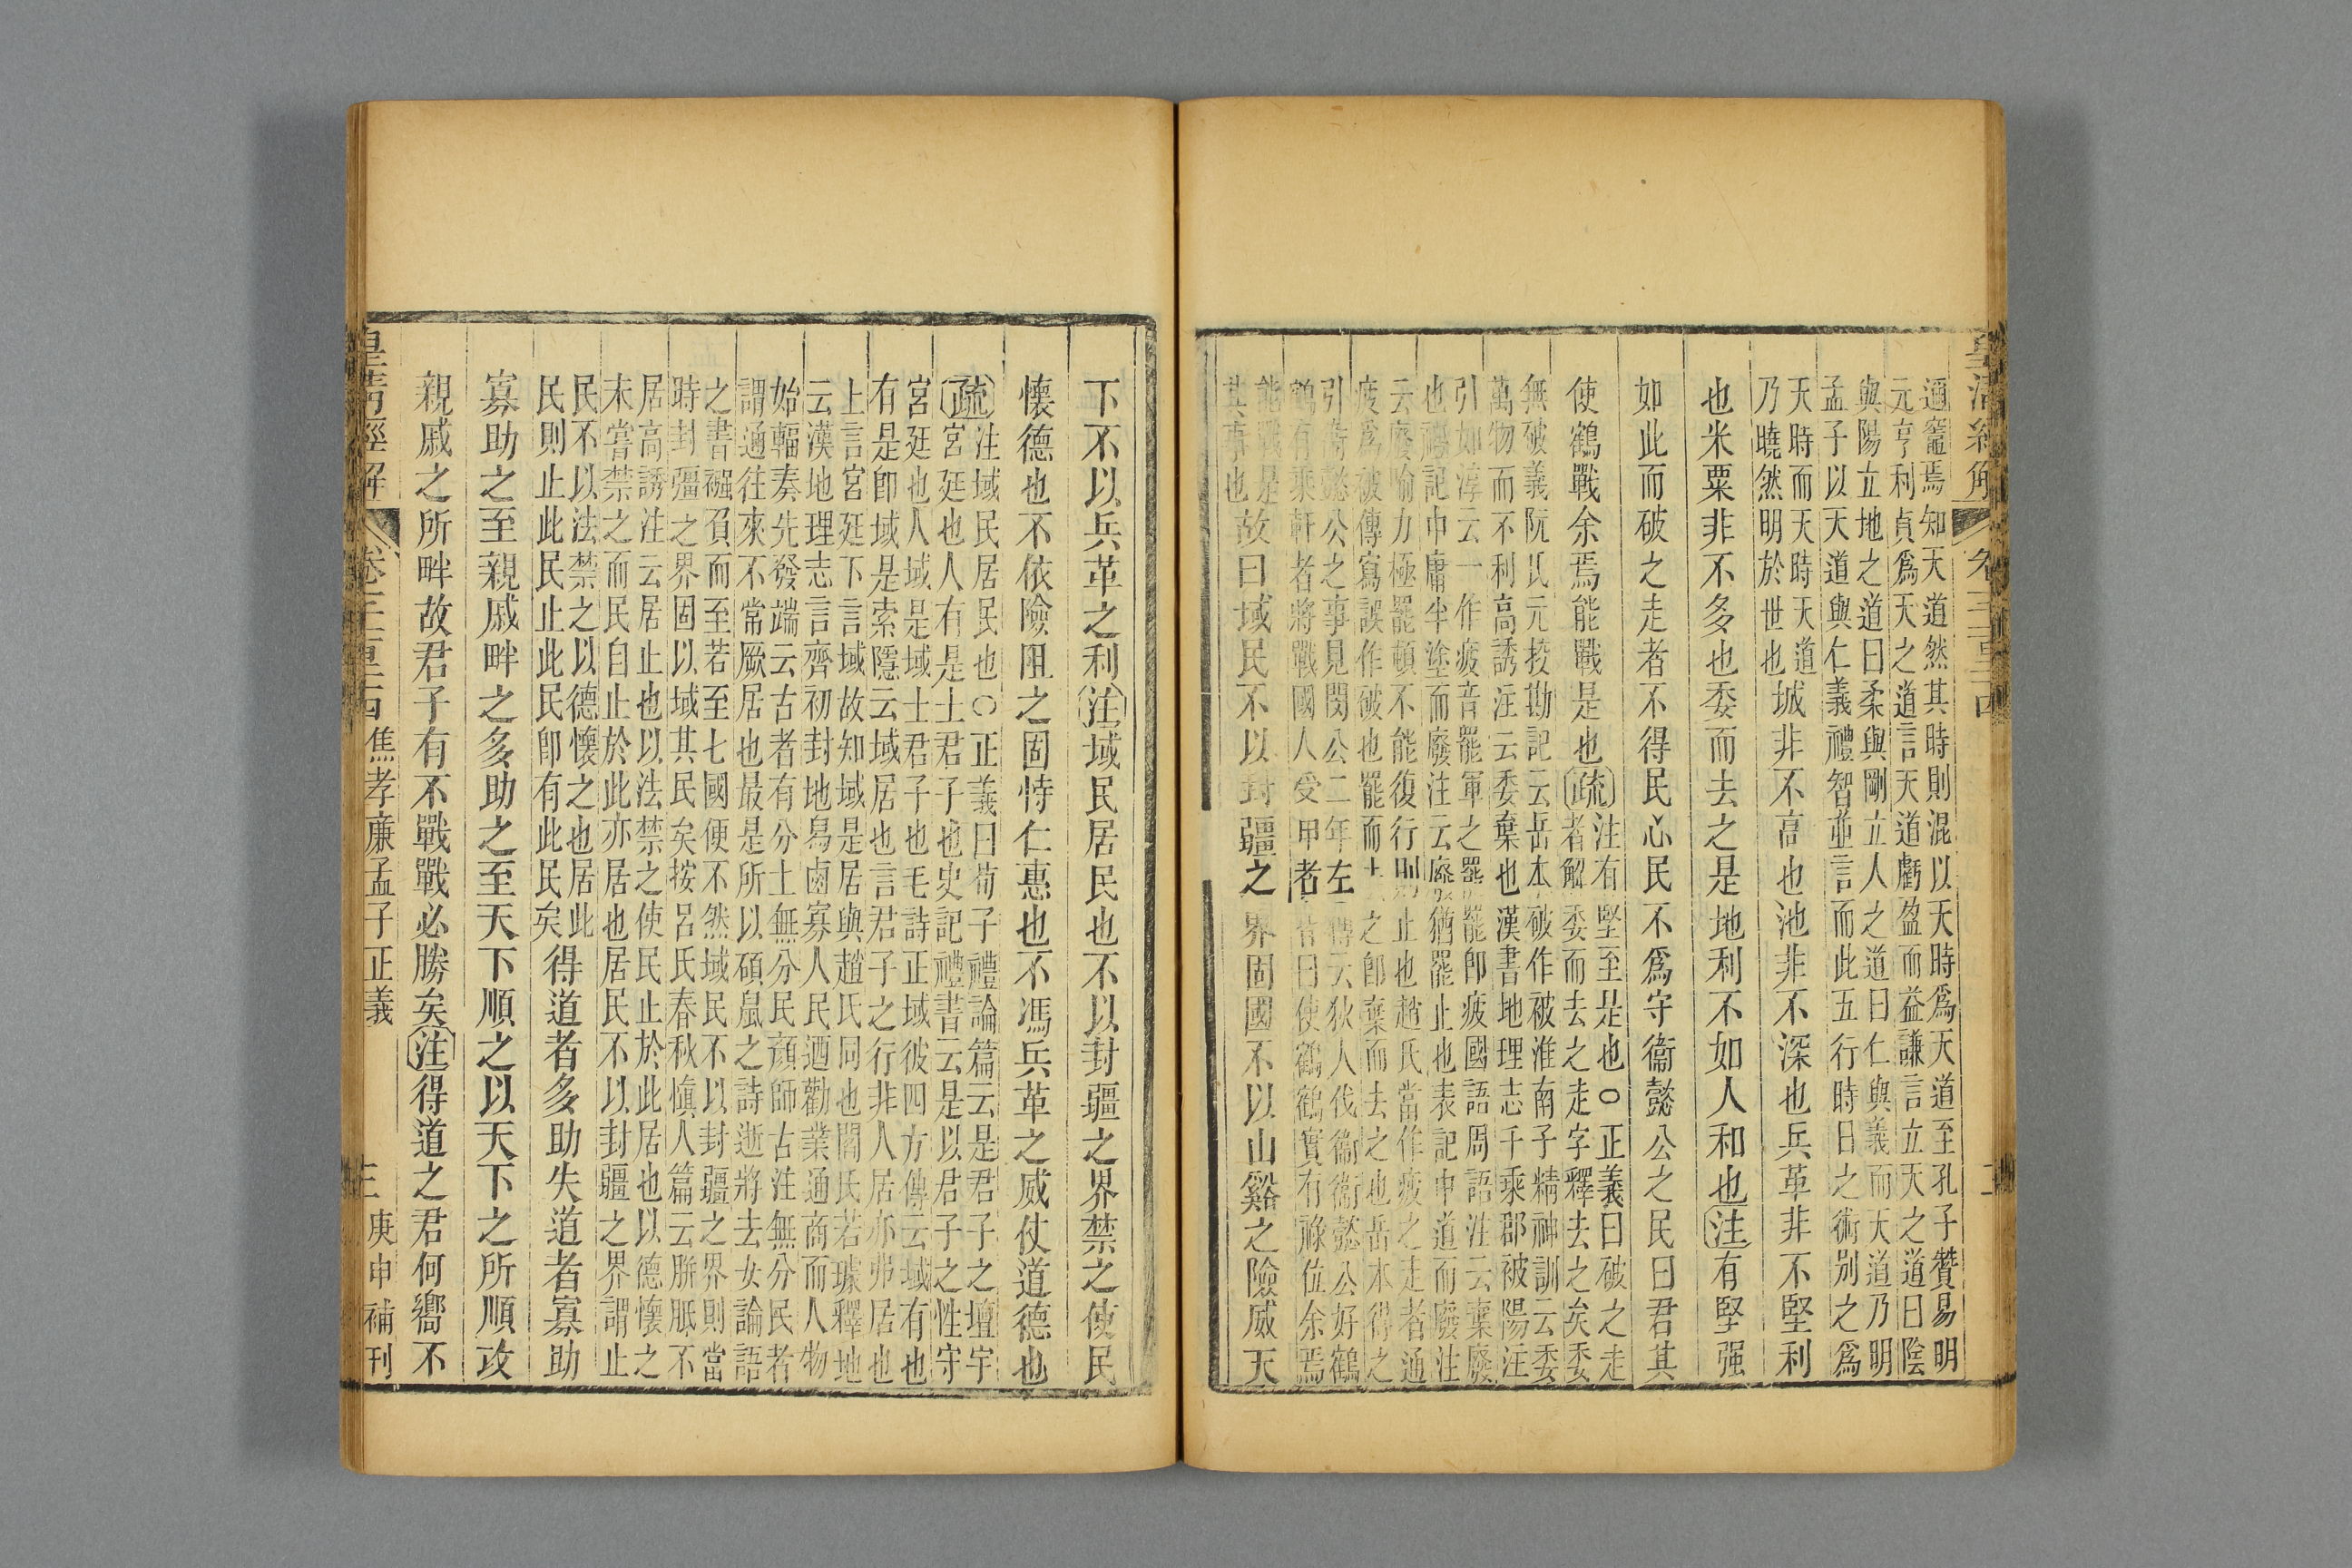 遁竈焉知天道然其時則混以天時爲天道至孔子贊易明
元亨利貞爲天之道言天道虧盈而益謙言立天之道曰陰
與陽立地之道曰柔與剛立人之道曰仁與義而天道乃明
孟子以天道與仁義禮智並言而此五行時日之術別之爲
天時而天時天道
乃曉然明於世也
城非不高也池非不深也兵革非不堅利
也米粟非不多也委而去之是地利不如人和也注有堅强
如此而破之走者不得民心民不爲守衞懿公之民曰君其
使鶴戰余焉能戰是也疏
注有堅至是也○正義曰破之走
者解委而去之走字釋去之矣委
無破義阮氏元挍勘記云岳本破作被淮南子精神訓云委
萬物而不利高誘注云委棄也漢書地理志千乘郡被陽注
引如淳云一作疲音罷軍之罷罷卽疲國語周語注云棄廢
也禮記中庸半塗而廢注云廢猶罷止也表記中道而廢注
云廢喻力極罷頓不能復行則止也趙氏當作疲之走者通
疲爲被傳寫誤作破也罷而去之卽棄而去之也岳本得之
引衞懿公之事見閔公二年左傳云狄人伐衞衞懿公好鶴
鶴有乘軒者將戰國人受甲者皆曰使鶴鶴實有祿位余焉
能戰是
其事也
故曰域民不以封疆之界固國不以山谿之險威天
下不以兵革之利注域民居民也不以封疆之界禁之使民
懷德也不依險阻之固恃仁惠也不馮兵革之威仗道德也
疏
注域民居民也○正義曰荀子禮論篇云是君子之壇宇
宮廷也人有是士君子也史記禮書云是以君子之性守
宮廷也人域是域士君子也毛詩正域彼四方傳云域有也
有是卽域是索隱云域居也言君子之行非人居亦弗居也
上言宮廷下言域故知域是居與趙氏同也閻氏若璩釋地
云漢地理志言齊初封地舄鹵寡人民迺勸業通商而人物
始輻奏先發端云古者有分土無分民顏師古注無分民者
謂通往來不常厥居也最是所以碩鼠之詩逝將去女論語
之書襁負而至若至七國便不然域民不以封疆之界則當
時封疆之界固以域其民矣按呂氏春秋愼人篇云胼胝不
居高誘注云居止也以法禁之使民止於此居也以德懷之
未嘗禁之而民自止於此亦居也居民不以封疆之界謂止
民不以法禁之以德懷之也居此
民則止此民止此民卽有此民矣
得道者多助失道者寡助
寡助之至親戚畔之多助之至天下順之以天下之所順攻
親戚之所畔故君子有不戰戰必勝矣注得道之君何嚮不
皇淸經解 卷三十四 焦孝廉孟子正義 三 庚申補刊